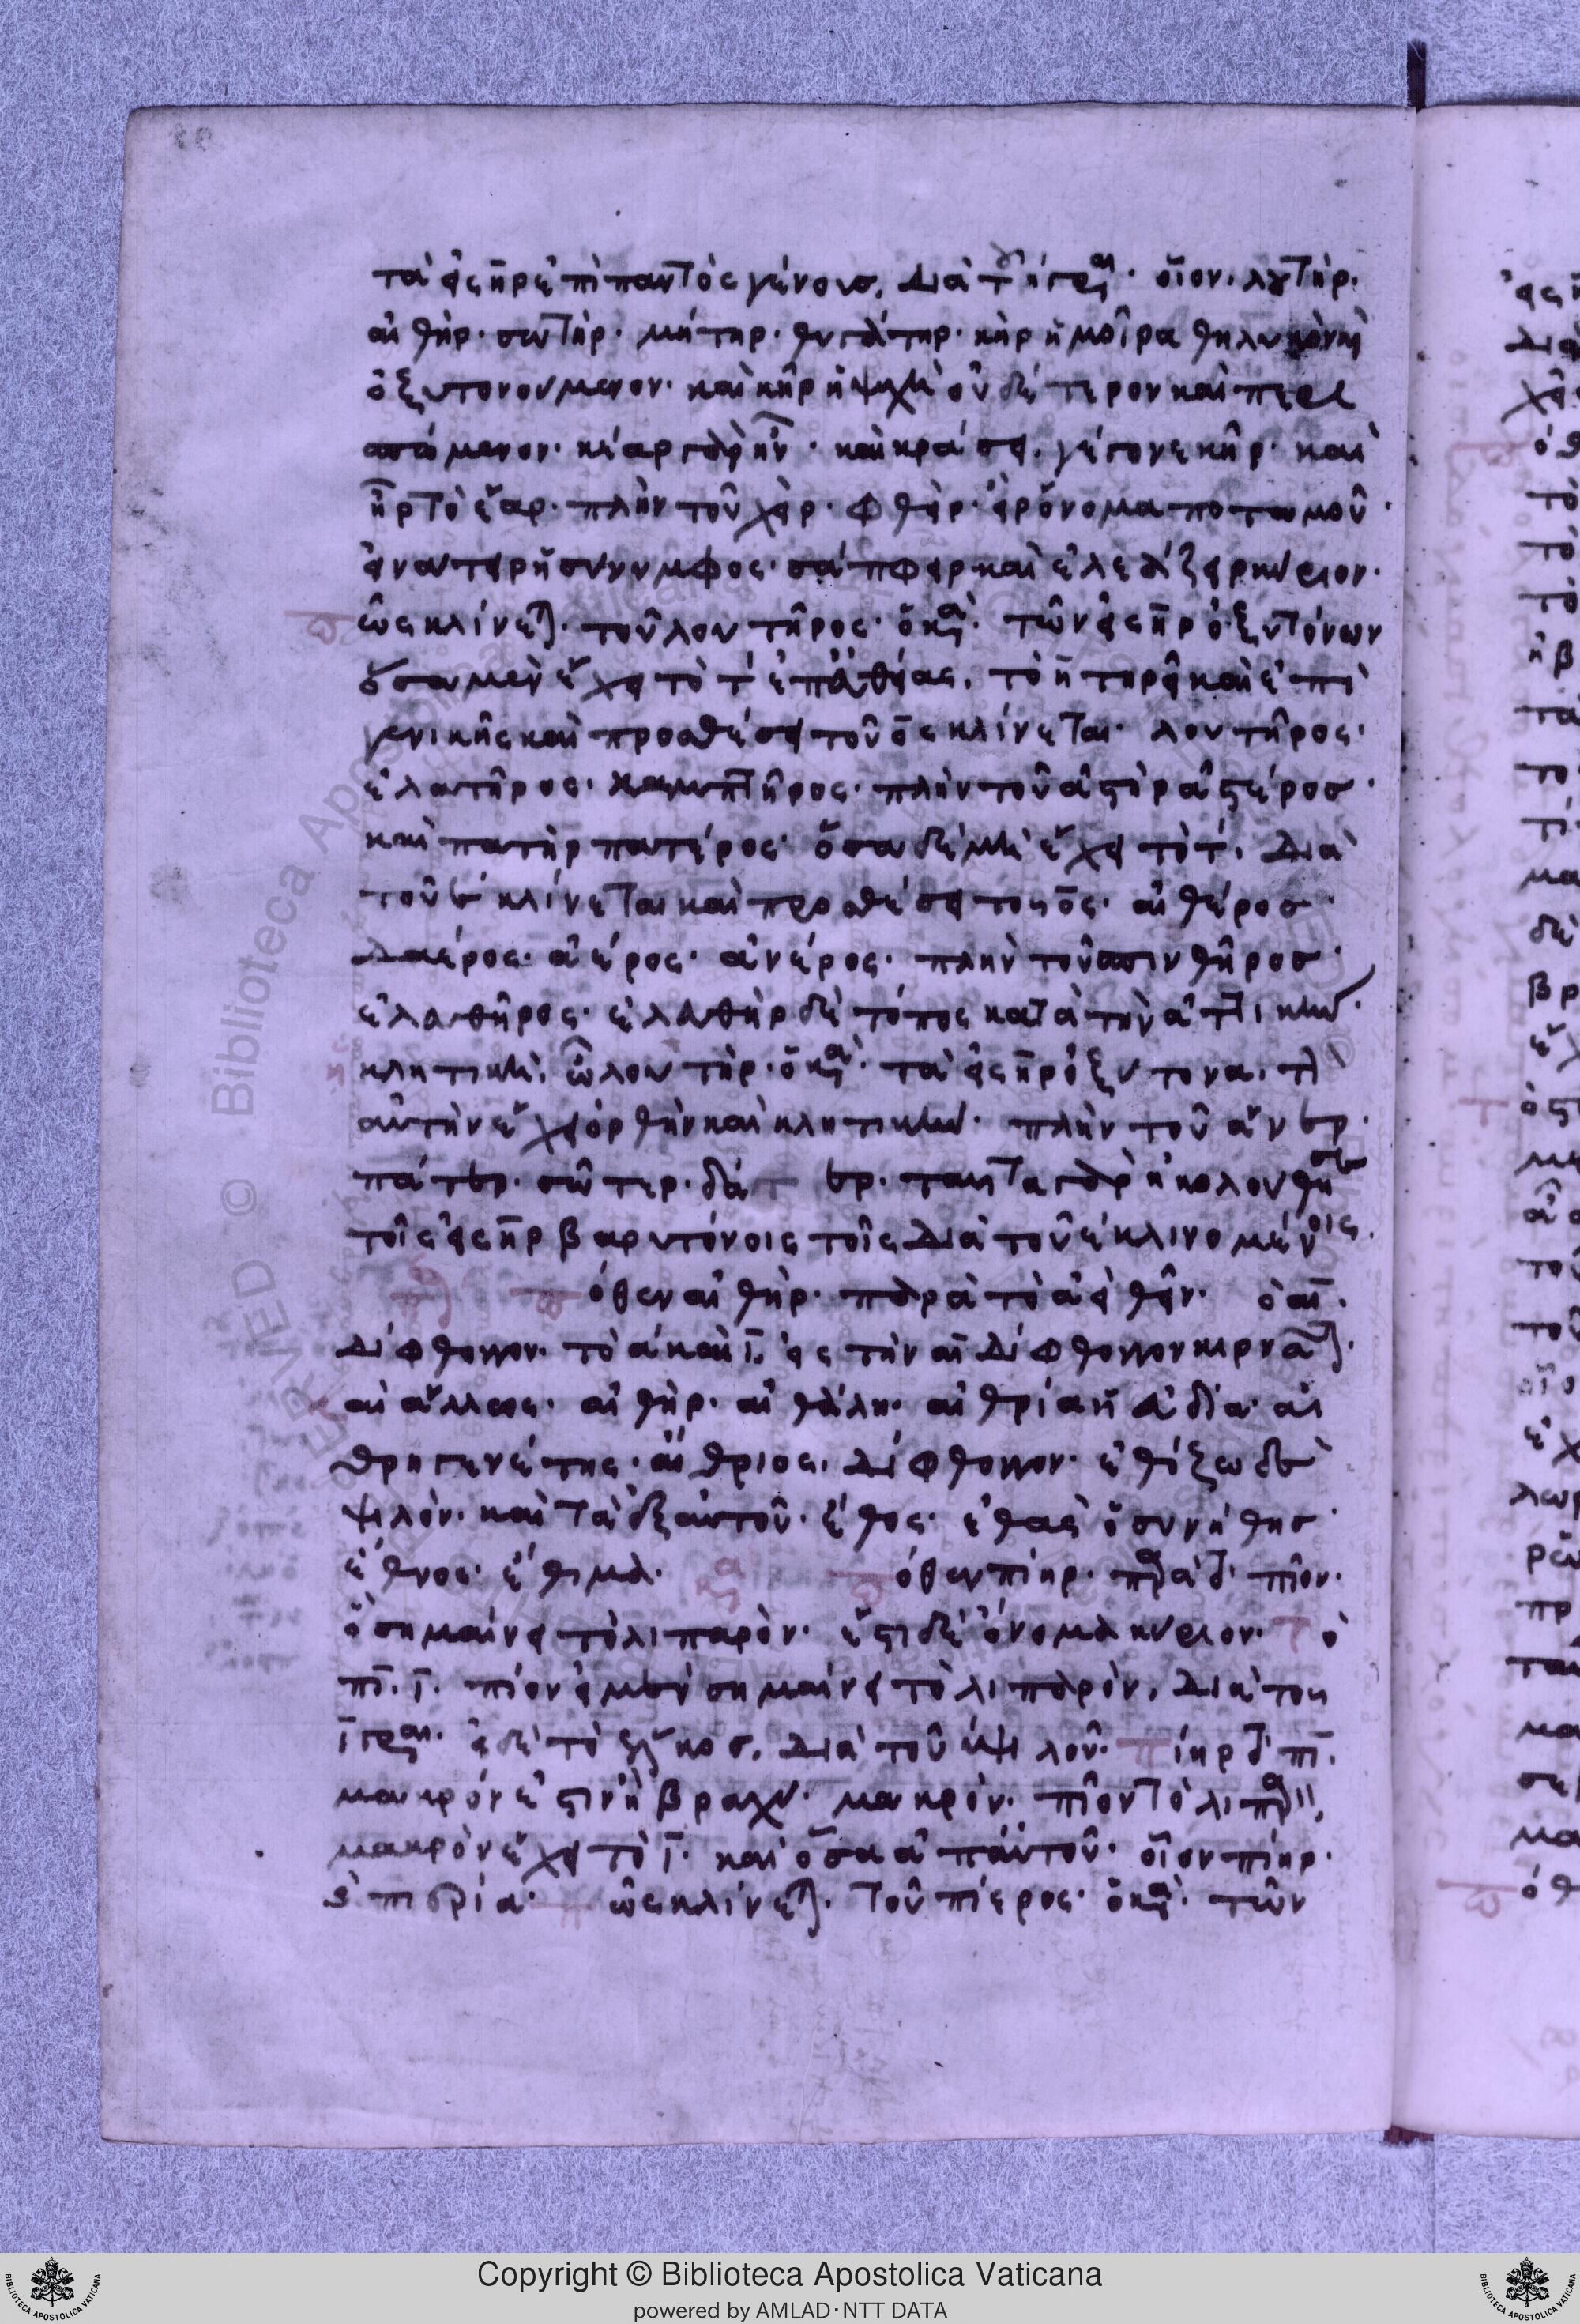 τὰ εἰς η̄ρ ἐπὶ παντὸς γένους, διὰ τ ἡ γρ. οἷον. λουτήρ.
αἰθήρ. σωτήρ. μήτηρ. θυγάτηρ. κὴρ ἡ μοῖρα θηλυκὸν καὶ
ὀξυτονούμενον. καὶ κῆρ ἡ ψυχὴ οὐδέτερον καὶ περι
σπώμενον. κέαρ γὰρ ἦν. καὶ κράσει. γέγονε κῆρ. καὶ
ἦρ τὸ ἔαρ. πλὴν τοῦ χείρ. φθείρ. εἲρ ὄνομα ποταμοῦ.
εἰνάτειρ ἡ σύννυμφος. σάπφειρ καὶ ἐλεάζειρ κύριον.
πῶς κλίνεται. τοῦ λουτῆρος. ὁ κα. τῶν εἰς η̄ρ ὀξυτόνων
ὅσα μὲν ἔχει τὸ τ ἐπ' εὐθείας. τὸ η̄ τηρεῖ καὶ ἐπὶ
γενικῆς καὶ προσθέσει τοῦ ο̄ς κλίνεται. λουτῆρος.
ἐλατῆρος. καμπτῆρος. πλὴν τοῦ ἀστὴρ ἀστέρος.
καὶ πατὴρ πατέρος. ὅσα δὲ μὴ ἔχει τὸ τ. διὰ
τοῦ ε κλίνεται καὶ προσθέσει του ο̄ς. αἰθέρος.
δαέρος. ἀέρος. ἀνέρος. πλὴν τοῦ σπινθῆρος.
ἐλαθῆρος. ἐλαθὴρ δὲ τόπος κατὰ τὴν ἀττικήν.
κλητική. ὦ λουτήρ. ὁ κα. τὰ εἰς η̄ρ ὀξύτονα. τὴ
αὐτὴν ἔχει ὀρθὴν καὶ κλητικήν. πλὴν τοῦ ἄνερ.
πάτερ. σῶτερ. δᾶερ. ταῦτα γὰρ ἠκολούθησε
τοῖς εἰς η̄ρ βαρυτόνοις τοῖς διὰ τοῦ ε κλινομένοις.
πόθεν αἰθήρ. παρὰ τὸ ἀεὶ θεῖν. ὁ αῑ.
δίφθογγον. τὸ α καὶ ῑ. εἰς τὴν αῑ δίφθογγον κιρνᾶται.
καὶ ἄλλως. αἰθήρ. αἰθάλη. αἰθρία ἡ εὐδία. αἰ
θρηγενέτης. αἴθριος. δίφθογγον. ἐθίζω δὲ
ψιλόν. καὶ τὰ ἐξ αὐτοῦ. ἔθος. ἐθὰς ὁ συνήθης.
ἔθνος. ἔθιμα. πόθεν πίηρ. παρὰ τ. πῖον.
ὃ σημαίνει τὸ λιπαρόν. ἔστι δὲ ὄνομα κύριον. τ ὸ
πῑ. ῑ. πῖον εἰ μὲν σημαίνει τὸ λιπαρόν. διὰ του
ῑ γρ. εἰ δὲ τὸ ἕλκος. διὰ τοῦ υ ψιλοῦ. πίηρ τ πῑ.
μακρόν ἐστιν ἢ βραχύ. μακρόν. πῖον τὸ λιπαρ.
μακρὸν ἔχει τὸ ῑ. καὶ ὅσα ἀπ' αὐτοῦ. οἷον πίηρ.
πιερία. πῶς κλίνεται. τοῦ πίερος. ὁ κα. τῶν
Copyright © Biblioteca Apostolica Vaticana
powered by AMLAD·NTT DATA